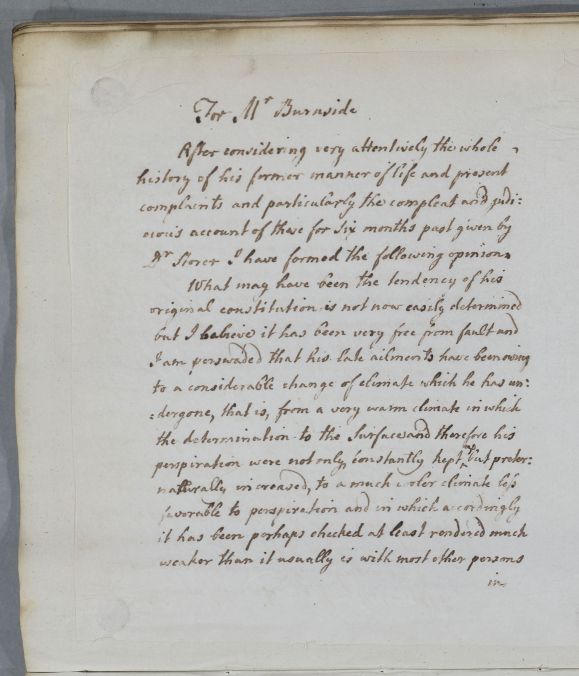 For Mr Burnside
After considering very attentively the whole
history of his former manner of life and present
complaints and particularly the compleat and judi:
cious account of these for six months past given by
Dr Storer I have formed the following opinion.
What may have been the tendency of his
original constitution is not now easily determined
but I believe it has been very free from fault and
I am perswaded that his late ailments have been owing
to a considerable change of climate which he has un:
:dergone, that is, from a very warm climate in which
the determination to the Surface and therefore his
perspiration were not only constantly kept up but preter:
naturally increased, to a much cooler climate less
favorable to perspiration and in which accordingly
it has been perhaps checked at least rendered much
weaker than it usually is with most other persons
in